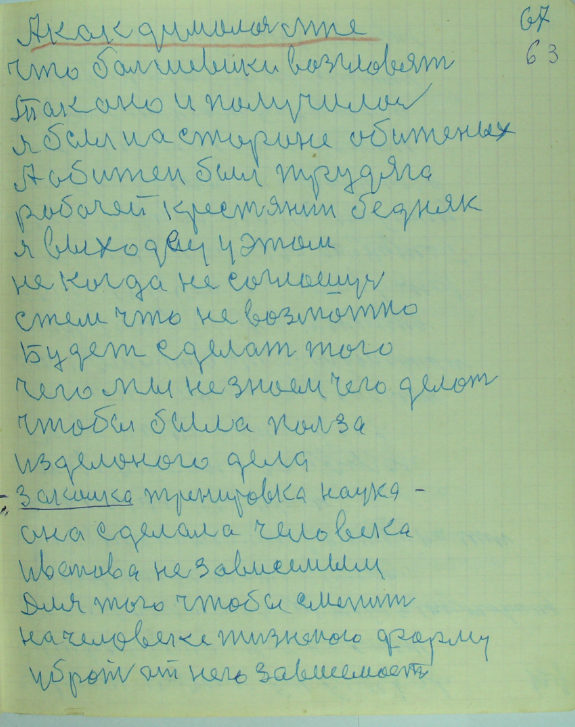 67
63
А как думалося мне
что болшевики возловят
Так оно и получилося
я был на стороне обиженых
А обижен был трудяга
рабочей крестянин бедняк
я выходец у этом
не когда не соглошус
стем что не возможно
Будет сделат того
чего мы не знаем чего делот
чтобы была полза
изделоного дела
Закалка тренировка наука -
она сделала человека
Иванова не зависемым
Для того чтобы сменит
на человеке жизненого форму
убрат от него зависемост